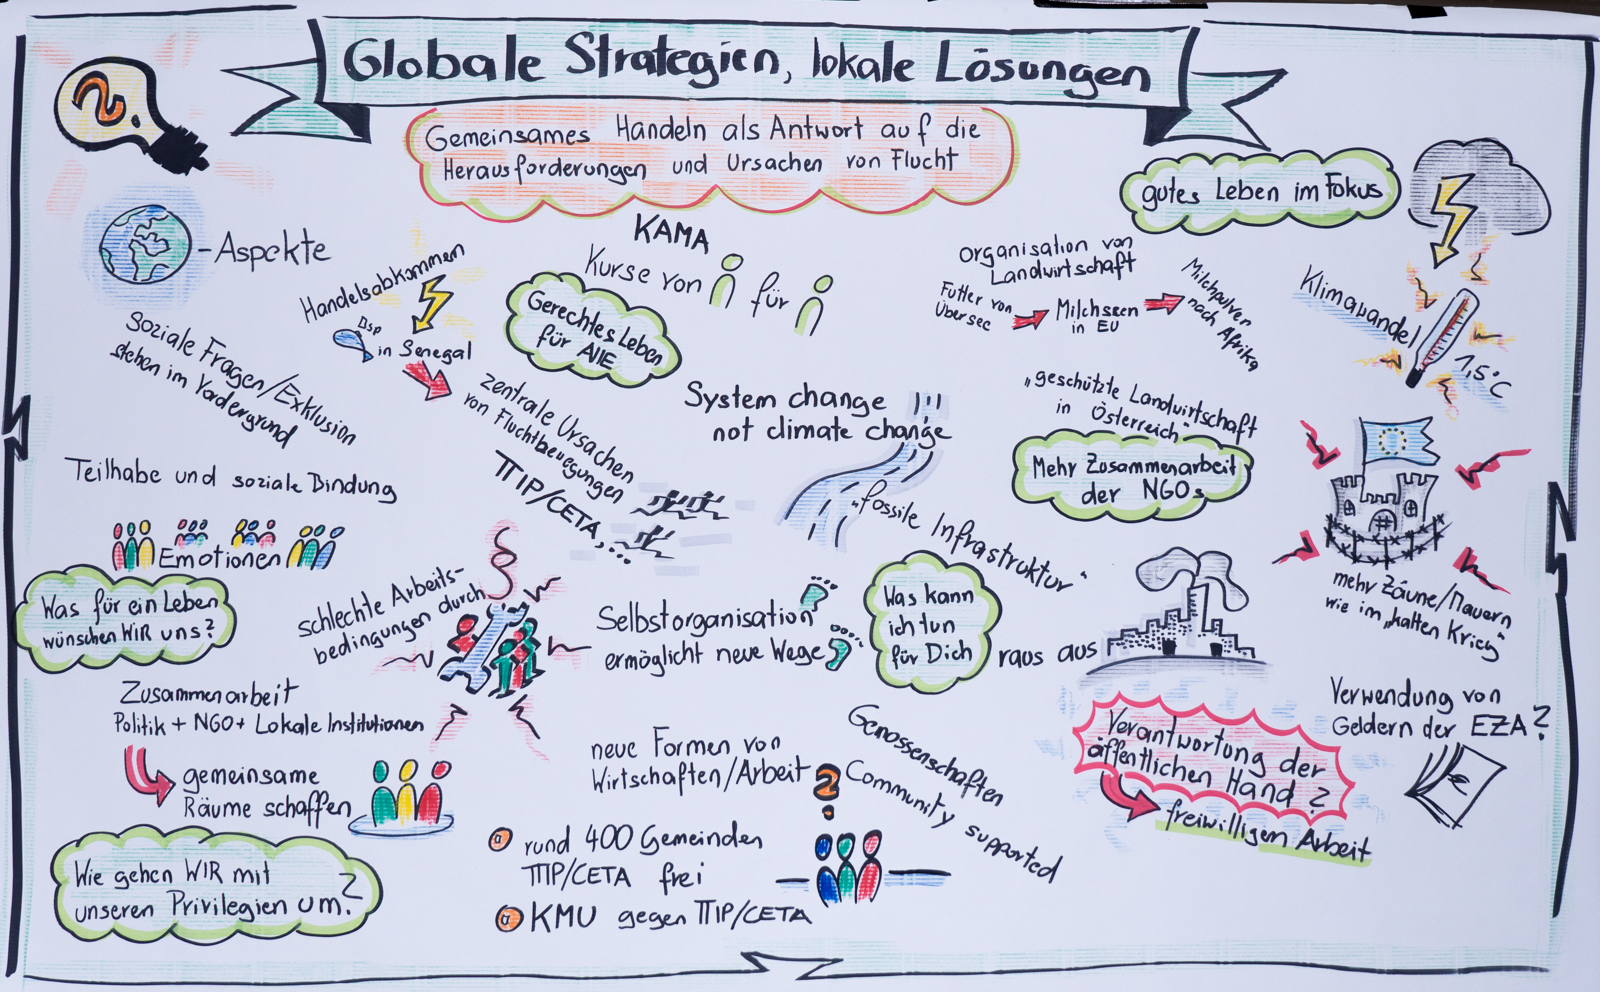 Globale Strategien, lokale Lösungen
Gemeinsames Handeln als Antwort auf die
Herausforderungen und Ursachen von Flucht
?
- Aspekte
soziale Fragen/Exklusion
stehen im Vordergrund
Teilhabe und soziale Bindung
Emotionen
Was für ein Leben
wünschen WIR uns?
Zusammenarbeit
Politik + NGO + Lokale Institutionen
gemeinsame
Räume schaffen
Wie gehen WIR mit
unseren Privilegien um?
Handelsabkommen
Bsp
in Senegal
zentrale Ursachen
von Fluchtbewegungen
TTIP/CETA, ...
schlechte Arbeits-
bedingungen durch
KAMA
Kurse von
für
Gerechtes Leben
für AllE
System change
not climate change
"fossile Infrastruktur"
raus aus
Selbstorganisation
ermöglicht neue Wege
Was kann
ich tun
für Dich
neue Formen von
Wirtschaften/Arbeit
?
Genossenschaften
Community supported
rund 400 Gemeinden
TTIP/CETA frei
KMU gegen TTIP/CETA
gutes Leben im Fokus
Organisation von
Landwirtschaft
Futter von
Übersee
Milchseen
in EU
Milchpulver
nach Afrika
Klimawandel
1,5°C
"geschützte Landwirtschaft
in Österreich"
Mehr Zusammenarbeit
der NGOs
mehr Zäune/Mauern
wie im "kalten Krieg"
Verwendung von
Geldern der EZA?
Verantwortung der
öffentlichen Hand?
freiwilligen Arbeit